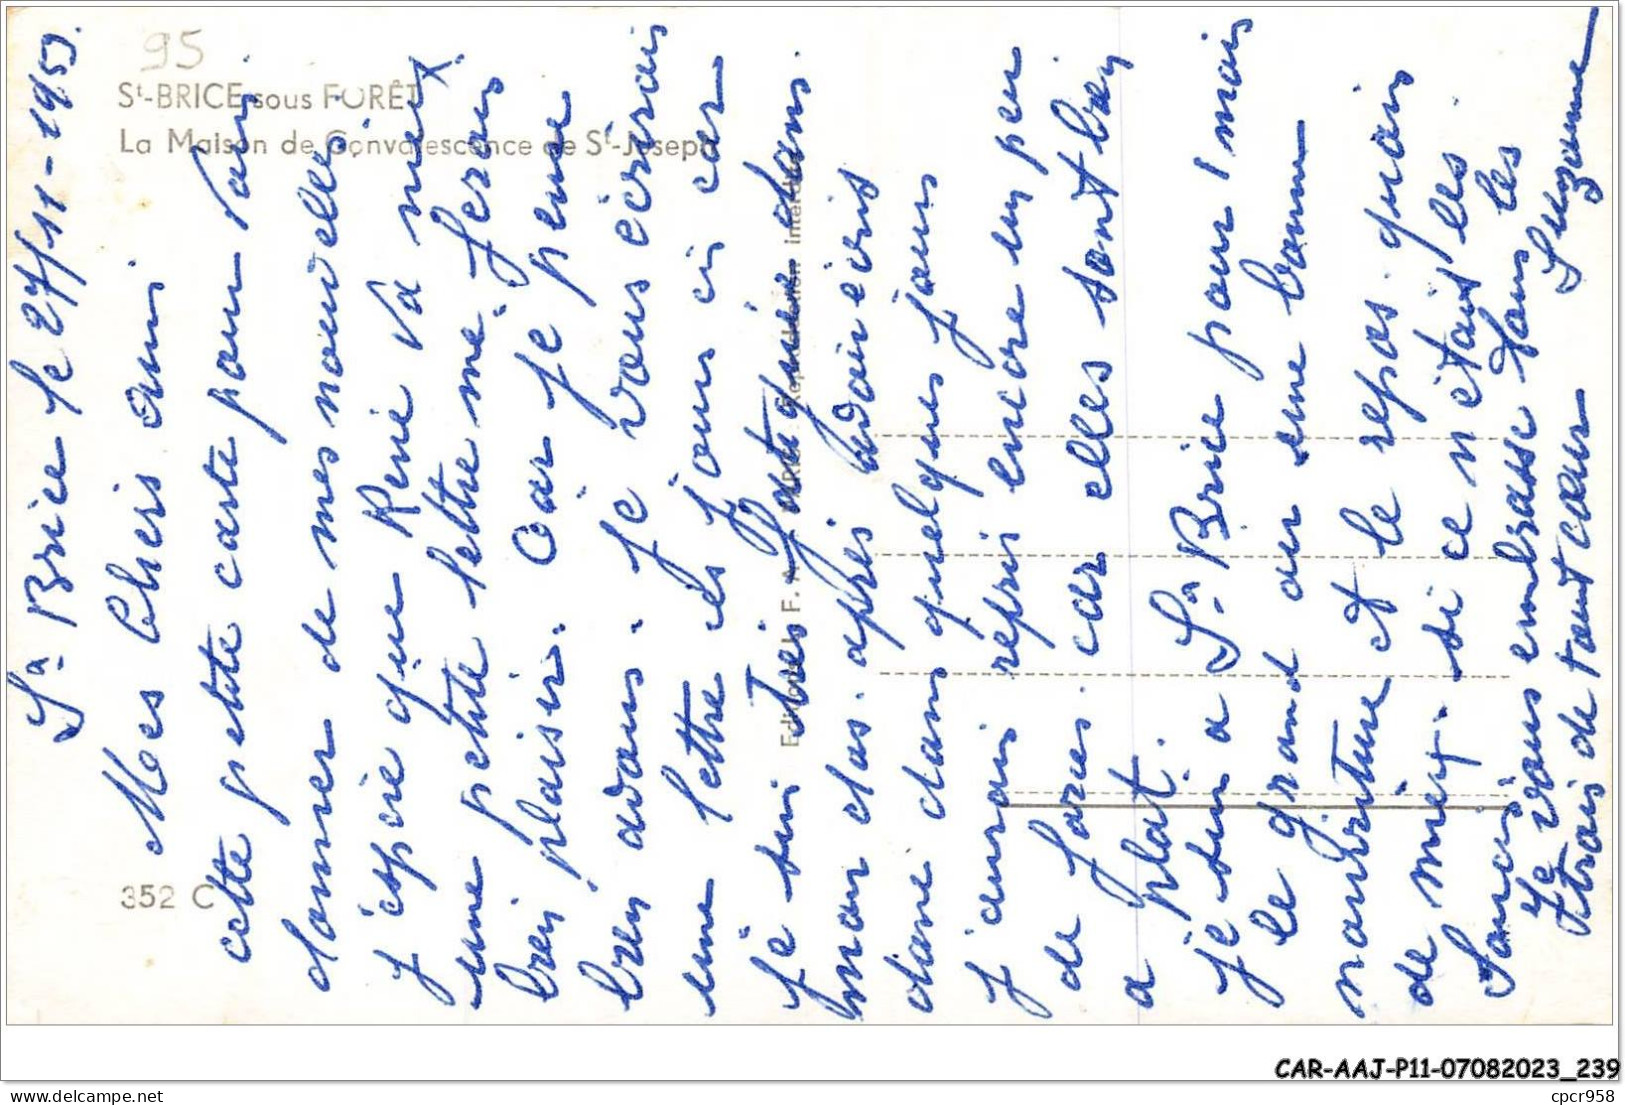 95
St-BRICE sous FORÊT
La Maison de Convalescence de St-Joseph
352 C
St Brice le 27/11-1953.
Mes Chers ami
cette petite carte pour vais
donner de mes nouvelles
j'espère que René va mieux
une petite lettre me ferais
bien plaisir. Car je pense
bien à vous. je vous écrirais
une lettre ces jours ci car
je suis très fatiguée dans
mon dos. après avoir écris
donc dans quelques jours
j'aurais repris encore un peu
de forces. car elles sont bien
a plat.
je suis a St Brice pour 1 mois
le grand air une bonne
nourriture et le repos. quoi
de mieux. si ce n'était les
soucis
Je vous embrasse tous les
trois de tout cœur Suzanne
CAR-AAJ-P11-07082023_239
delcampe.net
cpcr958